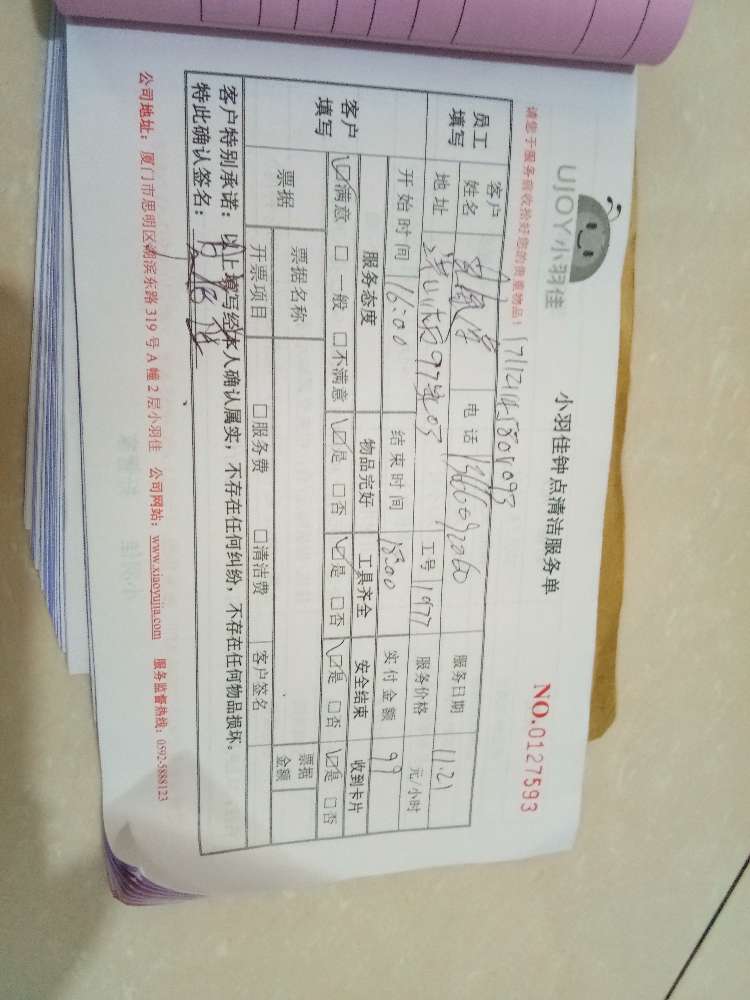 UJOY小羽佳
小羽佳钟点清洁服务单
NO.0127593
请您于服务前收拾好您的贵重物品!
员工填写 客户姓名 电话 服务日期 11.21
地址 工号 1977 服务价格 元/小时
开始时间 16:00 结束时间 18:00 实付金额 99
客户填写 服务态度 物品完好 工具齐全 安全结束 收到卡片
☑满意 □一般 □不满意 ☑是 □否 ☑是 □否 ☑是 □否 ☑是 □否
票据 票据名称 票据金额
开票项目 □服务费 □清洁费 客户签名
客户特别承诺：以上填写经本人确认属实，不存在任何纠纷，不存在任何物品损坏。
特此确认签名：
公司地址：厦门市思明区湖滨东路319号A幢2层小羽佳 公司网站：www.xiaoyujia.com 服务监督热线：0592-5888123